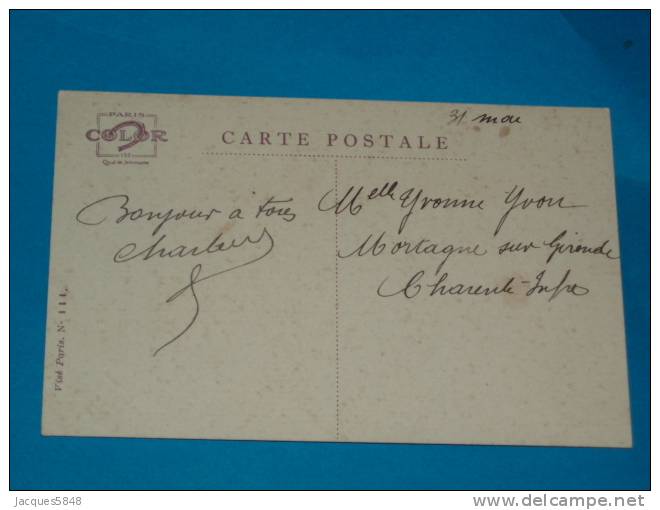 PARIS
COLOR
152
CARTE POSTALE
31 mai
Bonjour à tous
Charles
Melle Yvonne Yvon
Mortagne sur Gironde
Charente-Infre
Visé Paris. N° 111.
Jacques5848
www.delcampe.net